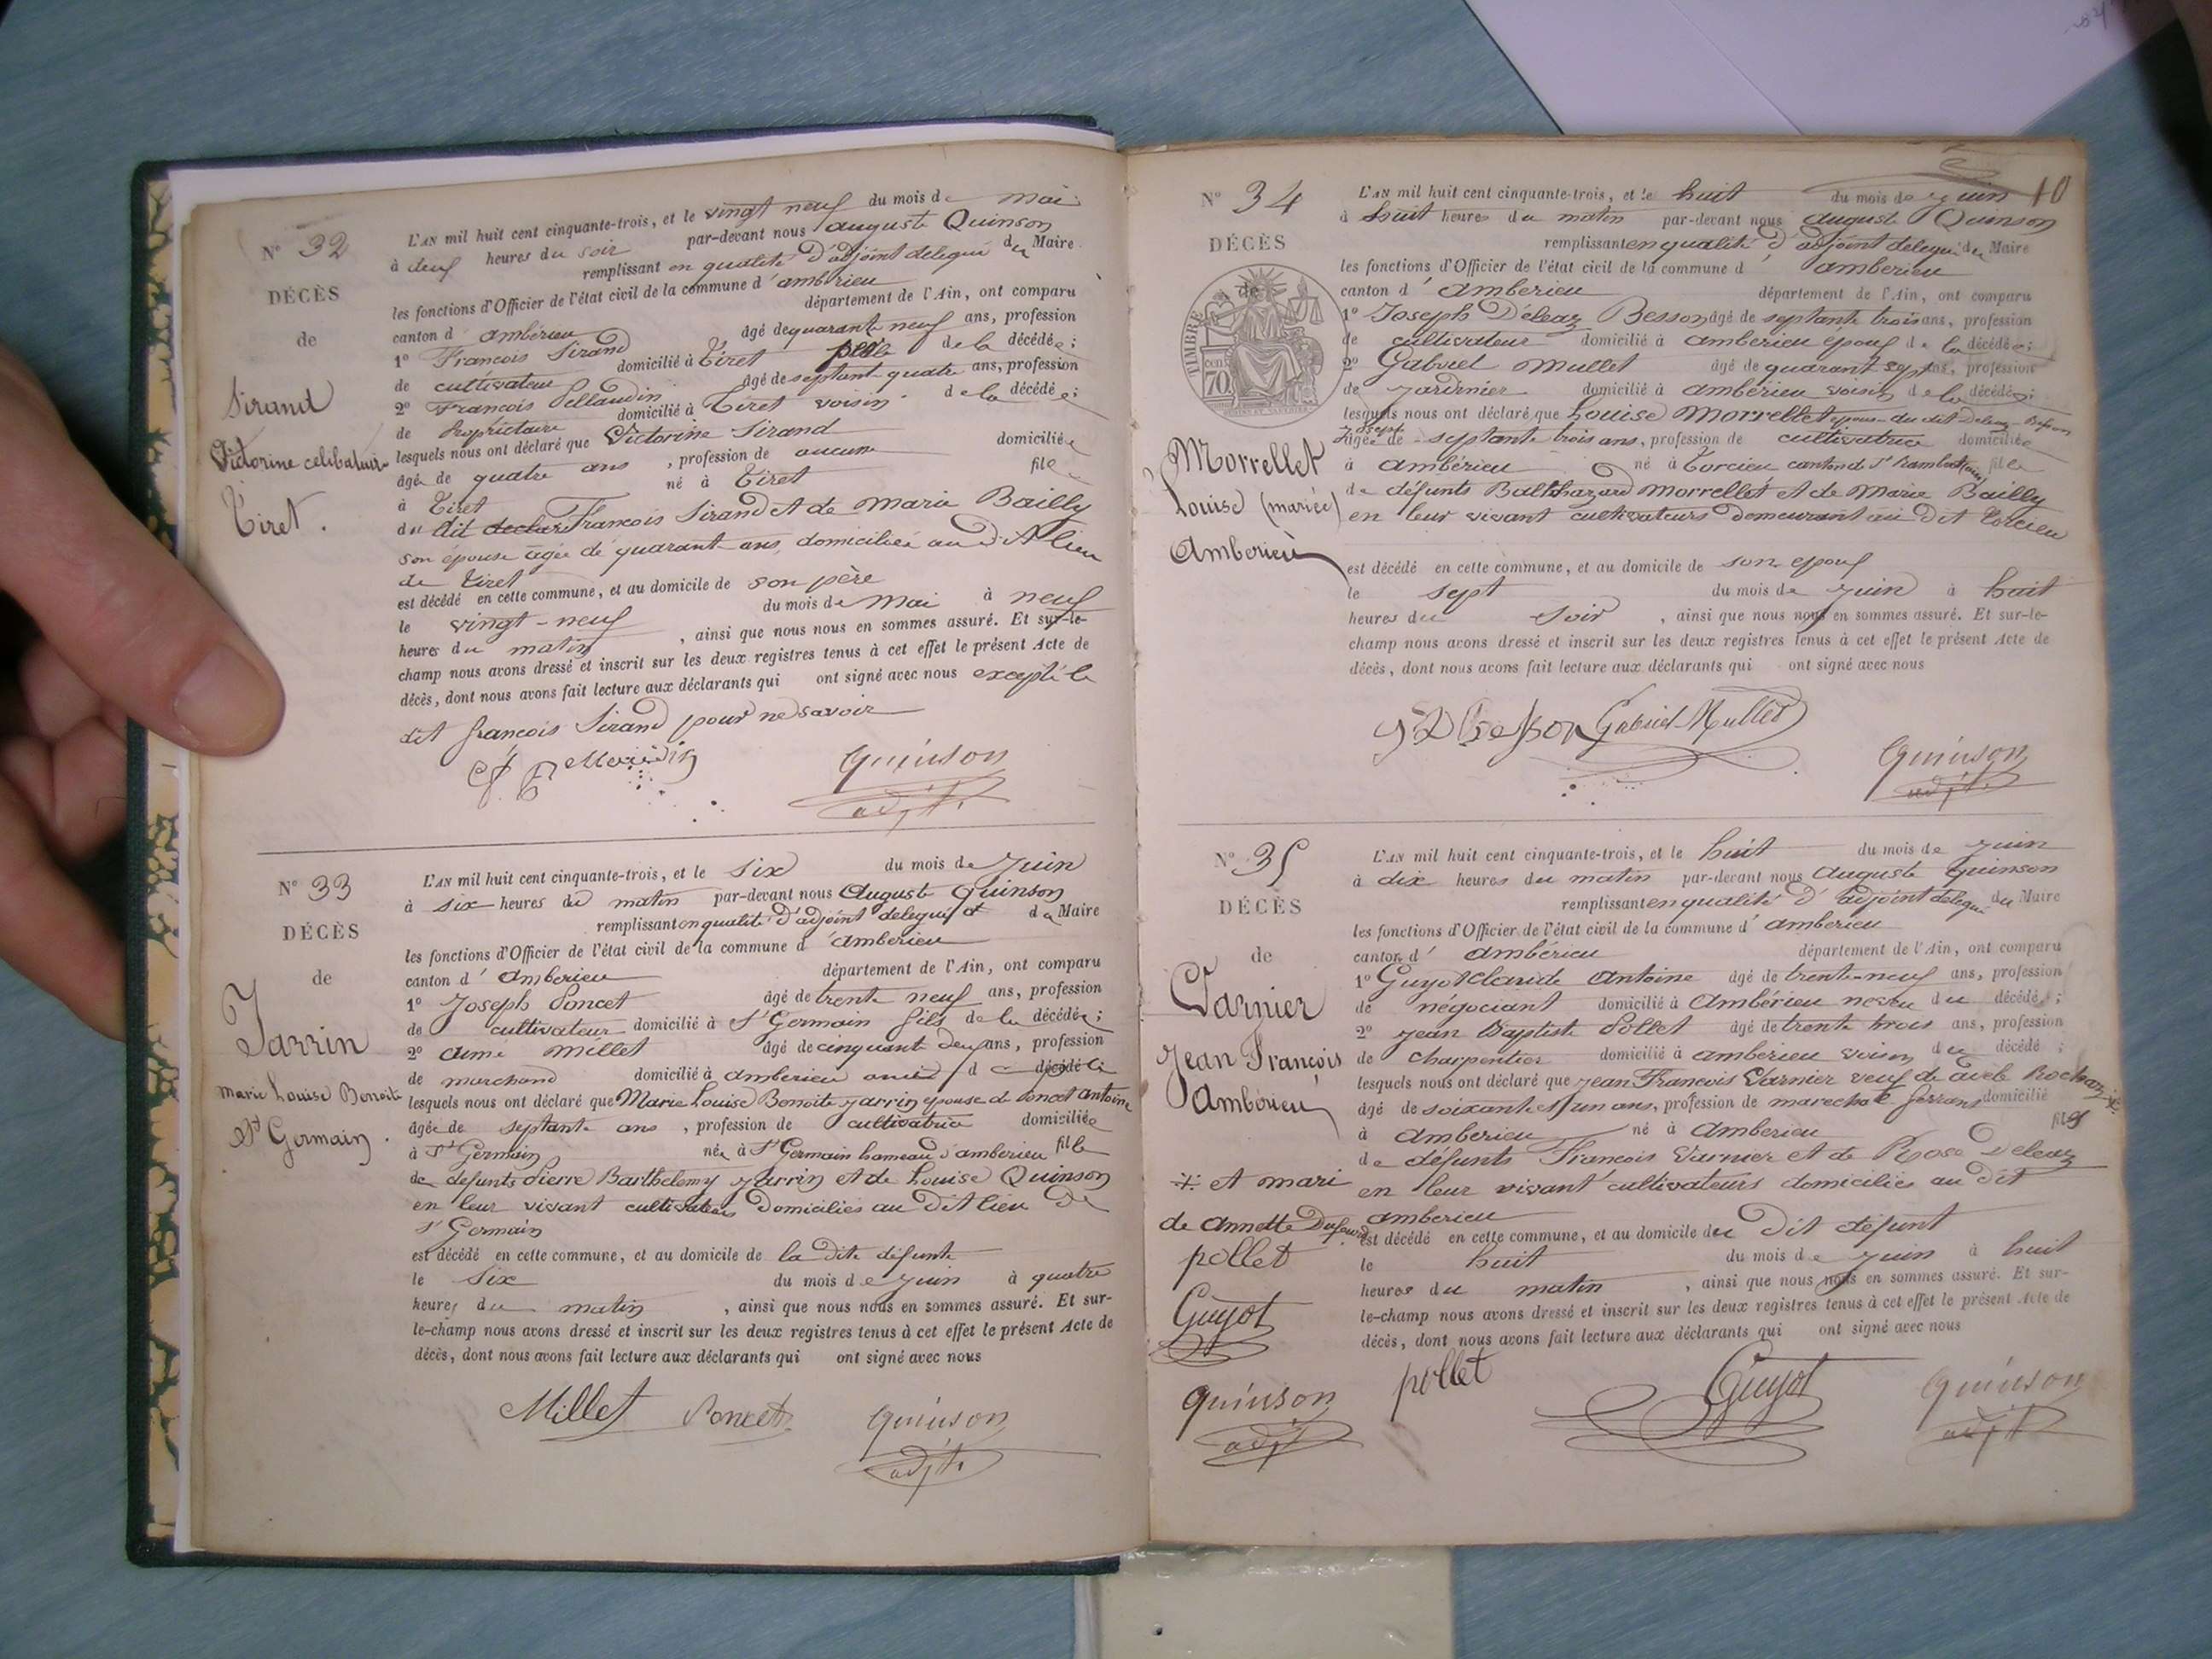 N° 32
DÉCÈS
de
Sirand
Victorine célibataire
Tiret.
L'AN mil huit cent cinquante-trois, et le vingt neuf du mois de mai
à deux heures du soir par-devant nous auguste Quinson
remplissant en qualité d'adjoint délégué du Maire
les fonctions d'Officier de l'état civil de la commune d'ambérieu
canton d ambérieu département de l'Ain, ont comparu
1° Francois Sirand âgé de quarante neuf ans, profession
de cultivateur domicilié à Tiret père de la décédée;
2° Francois Pellaudin âgé de septante quatre ans, profession
de Propriétaire domicilié à Tiret voisin de la décédée;
lesquels nous ont déclaré que Victorine Sirand
âgé de quatre ans, profession de aucune domiciliée
à Tiret né à Tiret fille
du dit Francois Sirand et de Maria Bailly
son épouse agée de quarante ans, domiciliée au dit lieu
de Tiret
est décédé en cette commune, et au domicile de son père
le vingt-neuf du mois de Mai à neuf
heures du matin, ainsi que nous nous en sommes assuré. Et sur-le-
champ nous avons dressé et inscrit sur les deux registres tenus à cet effet le présent Acte de
décès, dont nous avons fait lecture aux déclarants qui ont signé avec nous excepté le
dit françois Sirand pour ne savoir
Quinson
adjt.
N° 33
DÉCÈS
de
Jarrin
Marie Louise Benoite
St Germain.
L'AN mil huit cent cinquante-trois, et le six du mois de Juin
à six heures du matin par-devant nous Auguste Quinson
remplissant en qualité d'adjoint délégué du Maire
les fonctions d'Officier de l'état civil de la commune d'amberieu
canton d'Amberieu département de l'Ain, ont comparu
1° Joseph Poncet âgé de trente neuf ans, profession
de cultivateur domicilié à St Germain fils de la décédée;
2° Aimé Millet âgé de cinquante deux ans, profession
de marchand domicilié à amberieu ami d décédé
lesquels nous ont déclaré que Marie Louise Benoite Jarrin épouse de Poncet Antoine
âgée de septante ans, profession de cultivatrice domiciliée
à St Germain née à St Germain hameau d'amberieu fille
de defunts Pierre Barthelemy Jarrin et de Louise Quinson
en leur vivant cultivateurs domiciliés au dit lieu de
St Germain
est décédé en cette commune, et au domicile de la dite défunte
le six du mois de Juin à quatre
heures du matin, ainsi que nous nous en sommes assuré. Et sur-
le-champ nous avons dressé et inscrit sur les deux registres tenus à cet effet le présent Acte de
décès, dont nous avons fait lecture aux déclarants qui ont signé avec nous
Millet Poncet Quinson
adjt.
10
N° 34
DÉCÈS
de
TIMBRE
70
Morrellet
Louise (mariée)
Amberieu
L'AN mil huit cent cinquante-trois, et le huit du mois de Juin
à huit heures du matin par-devant nous Auguste Quinson
remplissant en qualité d'adjoint délégué du Maire
les fonctions d'Officier de l'état civil de la commune d amberieu
canton d' Amberieu département de l'Ain, ont comparu
1° Joseph Deleaz Besson âgé de septante trois ans, profession
de cultivateur domicilié à amberieu epoux de la décédée;
2° Gabriel Mullet âgé de quarante sept ans, profession
de Jardinier domicilié à ambérieu voisin de la décédée;
lesquels nous ont déclaré que Louise Morrellet epouse du dit Deleaz Besson
Joseph
Agée de septante trois ans, profession de cultivatrice domiciliée
à Ambérieu né à Torcieu canton de St Rambert (ain) fille
de défunts Balthazard Morrellet et de Marie Bailly
en leur vivant cultivateurs demeurant au dit Torcieu
est décédé en cette commune, et au domicile de son epoux
le sept du mois de Juin à huit
heures du soir, ainsi que nous nous en sommes assuré. Et sur-le-
champ nous avons dressé et inscrit sur les deux registres tenus à cet effet le présent Acte de
décès, dont nous avons fait lecture aux déclarants qui ont signé avec nous
Besson Gabriel Mullet
Quinson
adjt.
N° 35
DÉCÈS
de
Varnier
Jean François
Ambérieu
L'AN mil huit cent cinquante-trois, et le huit du mois de Juin
à dix heures du matin par-devant nous Auguste Quinson
remplissant en qualité d'adjoint délégué du Maire
les fonctions d'Officier de l'état civil de la commune d'amberieu
canton d' ambérieu département de l'Ain, ont comparu
1° Guyot Claude Antoine âgé de trente-neuf ans, profession
de négociant domicilié à Ambérieu neveu du décédé;
2° Jean Baptiste Pollet âgé de trente trois ans, profession
de charpentier domicilié à amberieu voisin du décédé;
lesquels nous ont déclaré que Jean Francois Varnier veuf de Rochaz
âgé de soixante et un ans, profession de marechal ferrant domicilié
à Amberieu né à Amberieu fils
de défunts Francois Varnier et de Rose Deleaz
en leur vivant cultivateurs domicilies au dit
amberieu
est décédé en cette commune, et au domicile du dit défunt
le huit du mois de Juin à huit
heures du matin, ainsi que nous nous en sommes assuré. Et sur-
le-champ nous avons dressé et inscrit sur les deux registres tenus à cet effet le présent Acte de
décès, dont nous avons fait lecture aux déclarants qui ont signé avec nous
et mari
de Annette
pollet
Guyot
Quinson
adjt
pollet Guyot Quinson
adjt